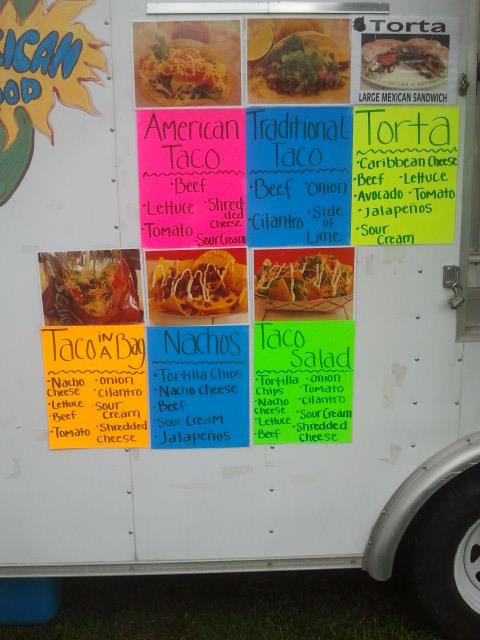 XICAN
OOD
Torta
LARGE MEXICAN SANDWICH
American
Taco
•Beef
•Lettuce •Shredded
Cheese
•Tomato
•Sour Cream
Traditional
Taco
•Beef •onion
•Cilantro •Side
of
Lime
Torta
•Caribbean Cheese
•Beef •Lettuce
•Avocado •Tomato
•Jalapeños
•Sour
Cream
Taco IN A Bag
•Nacho Cheese •onion
•Cilantro
•Lettuce •Sour
Cream
•Beef
•Tomato •Shredded
Cheese
Nachos
•Tortilla Chips
•Nacho Cheese
•Beef
•Sour Cream
•Jalapeños
Taco
Salad
•Tortilla Chips •onion
•Tomato
•Nacho Cheese •Cilantro
•Lettuce •Sour Cream
•Beef •Shredded
Cheese